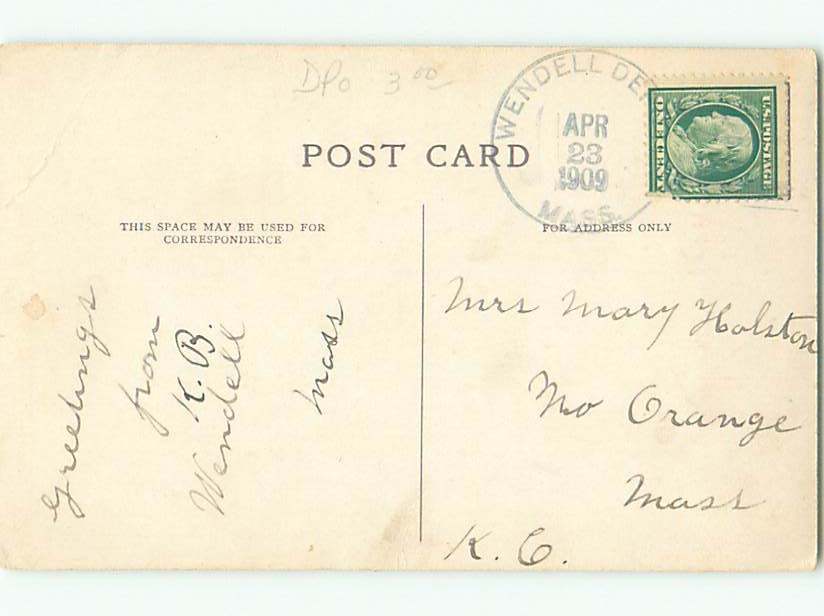 DPO 3 00
WENDELL DE
APR
23
1909
MASS.
U.S. POSTAGE
ONE CENT
POST CARD
THIS SPACE MAY BE USED FOR
CORRESPONDENCE
FOR ADDRESS ONLY
Greetings
from
K. B.
Wendell
Mass
Mrs Mary Holston
No Orange
Mass
K. C.